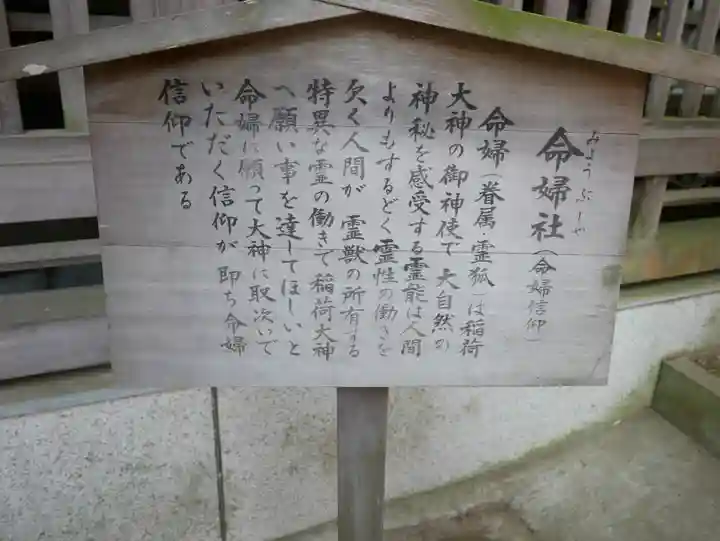 命婦社(命婦信仰)
みようぶしや
命婦(眷属・霊狐)は稲荷
大神の御神使で大自然の
神秘を感受する霊能は人間
よりもするどく霊性の働きを
欠く人間が霊獣の所有する
特異な霊の働きで稲荷大神
へ願い事を達してほしいと
命婦に願って大神に取次いで
いただく信仰が即ち命婦
信仰である